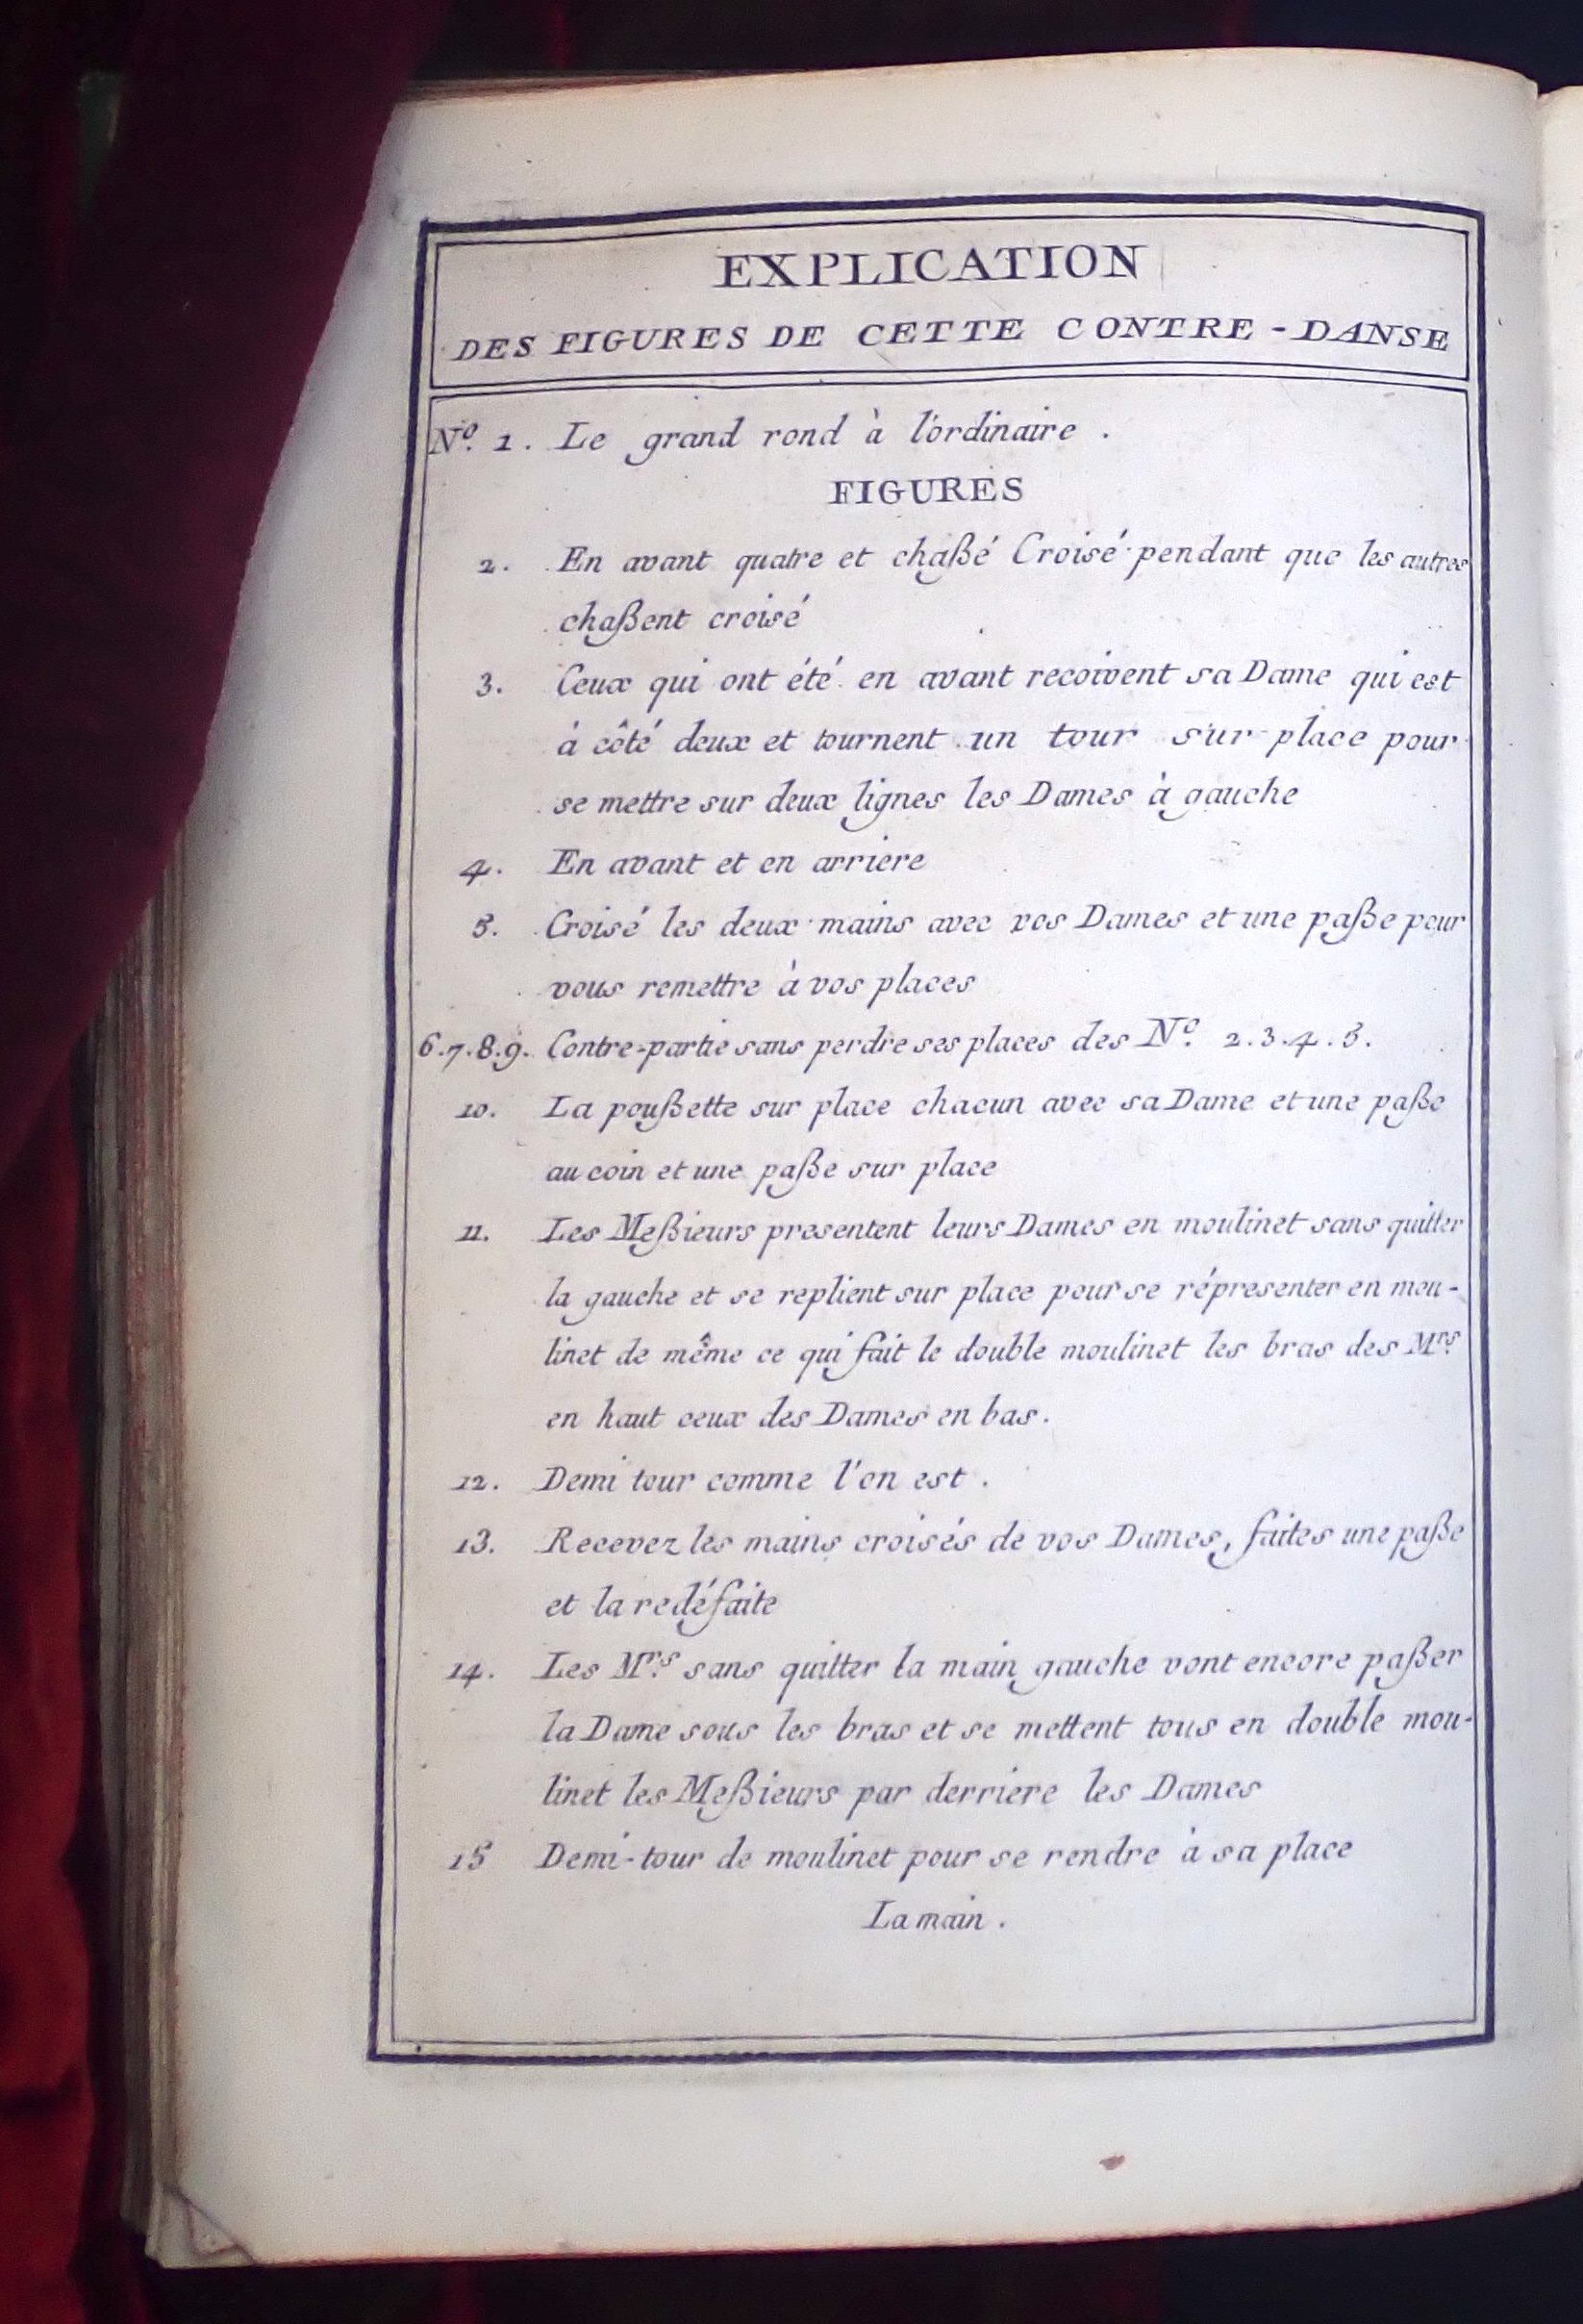 EXPLICATION
DES FIGURES DE CETTE CONTRE-DANSE
Nº. 1. Le grand rond à l'ordinaire.
FIGURES
2. En avant quatre et chaßé Croisé pendant que les autres
chaßent croisé
3. Ceux qui ont été en avant recoivent sa Dame qui est
à côté deux et tournent un tour sur place pour
se mettre sur deux lignes les Dames à gauche
4. En avant et en arriere
5. Croisé les deux mains avec vos Dames et une paße pour
vous remettre à vos places
6.7.8.9. Contre-partie sans perdre ses places des Nº. 2.3.4.5.
10. La poußette sur place chacun avec sa Dame et une paße
au coin et une paße sur place
11. Les Meßieurs presentent leurs Dames en moulinet sans quitter
la gauche et se replient sur place pour se répresenter en mou-
linet de même ce qui fait le double moulinet les bras des Mrs.
en haut ceux des Dames en bas.
12. Demi tour comme l'on est.
13. Recevez les mains croisés de vos Dames, faites une paße
et la redéfaite
14. Les Mrs. sans quitter la main gauche vont encore paßer
la Dame sous les bras et se mettent tous en double mou-
linet les Meßieurs par derriere les Dames
15 Demi-tour de moulinet pour se rendre à sa place
La main.